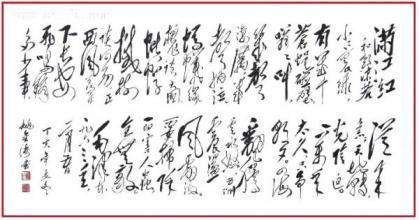 满江红
和郭沫若
小小寰球
有几个
苍蝇碰壁
嗡嗡叫
几声
凄厉几
声抽泣
蚂蚁缘
槐夸大国
蚍蜉
撼树
谈何易正
西风落叶
下长安
飞鸣镝
多少事
从来急
天地转
光阴迫
一万年
太久只争
朝夕四海
翻腾
云水怒五洲
震荡
风雷激
要扫除
一切害人虫
全无敌
毛泽东
一九六三年
一月九日
丁亥年